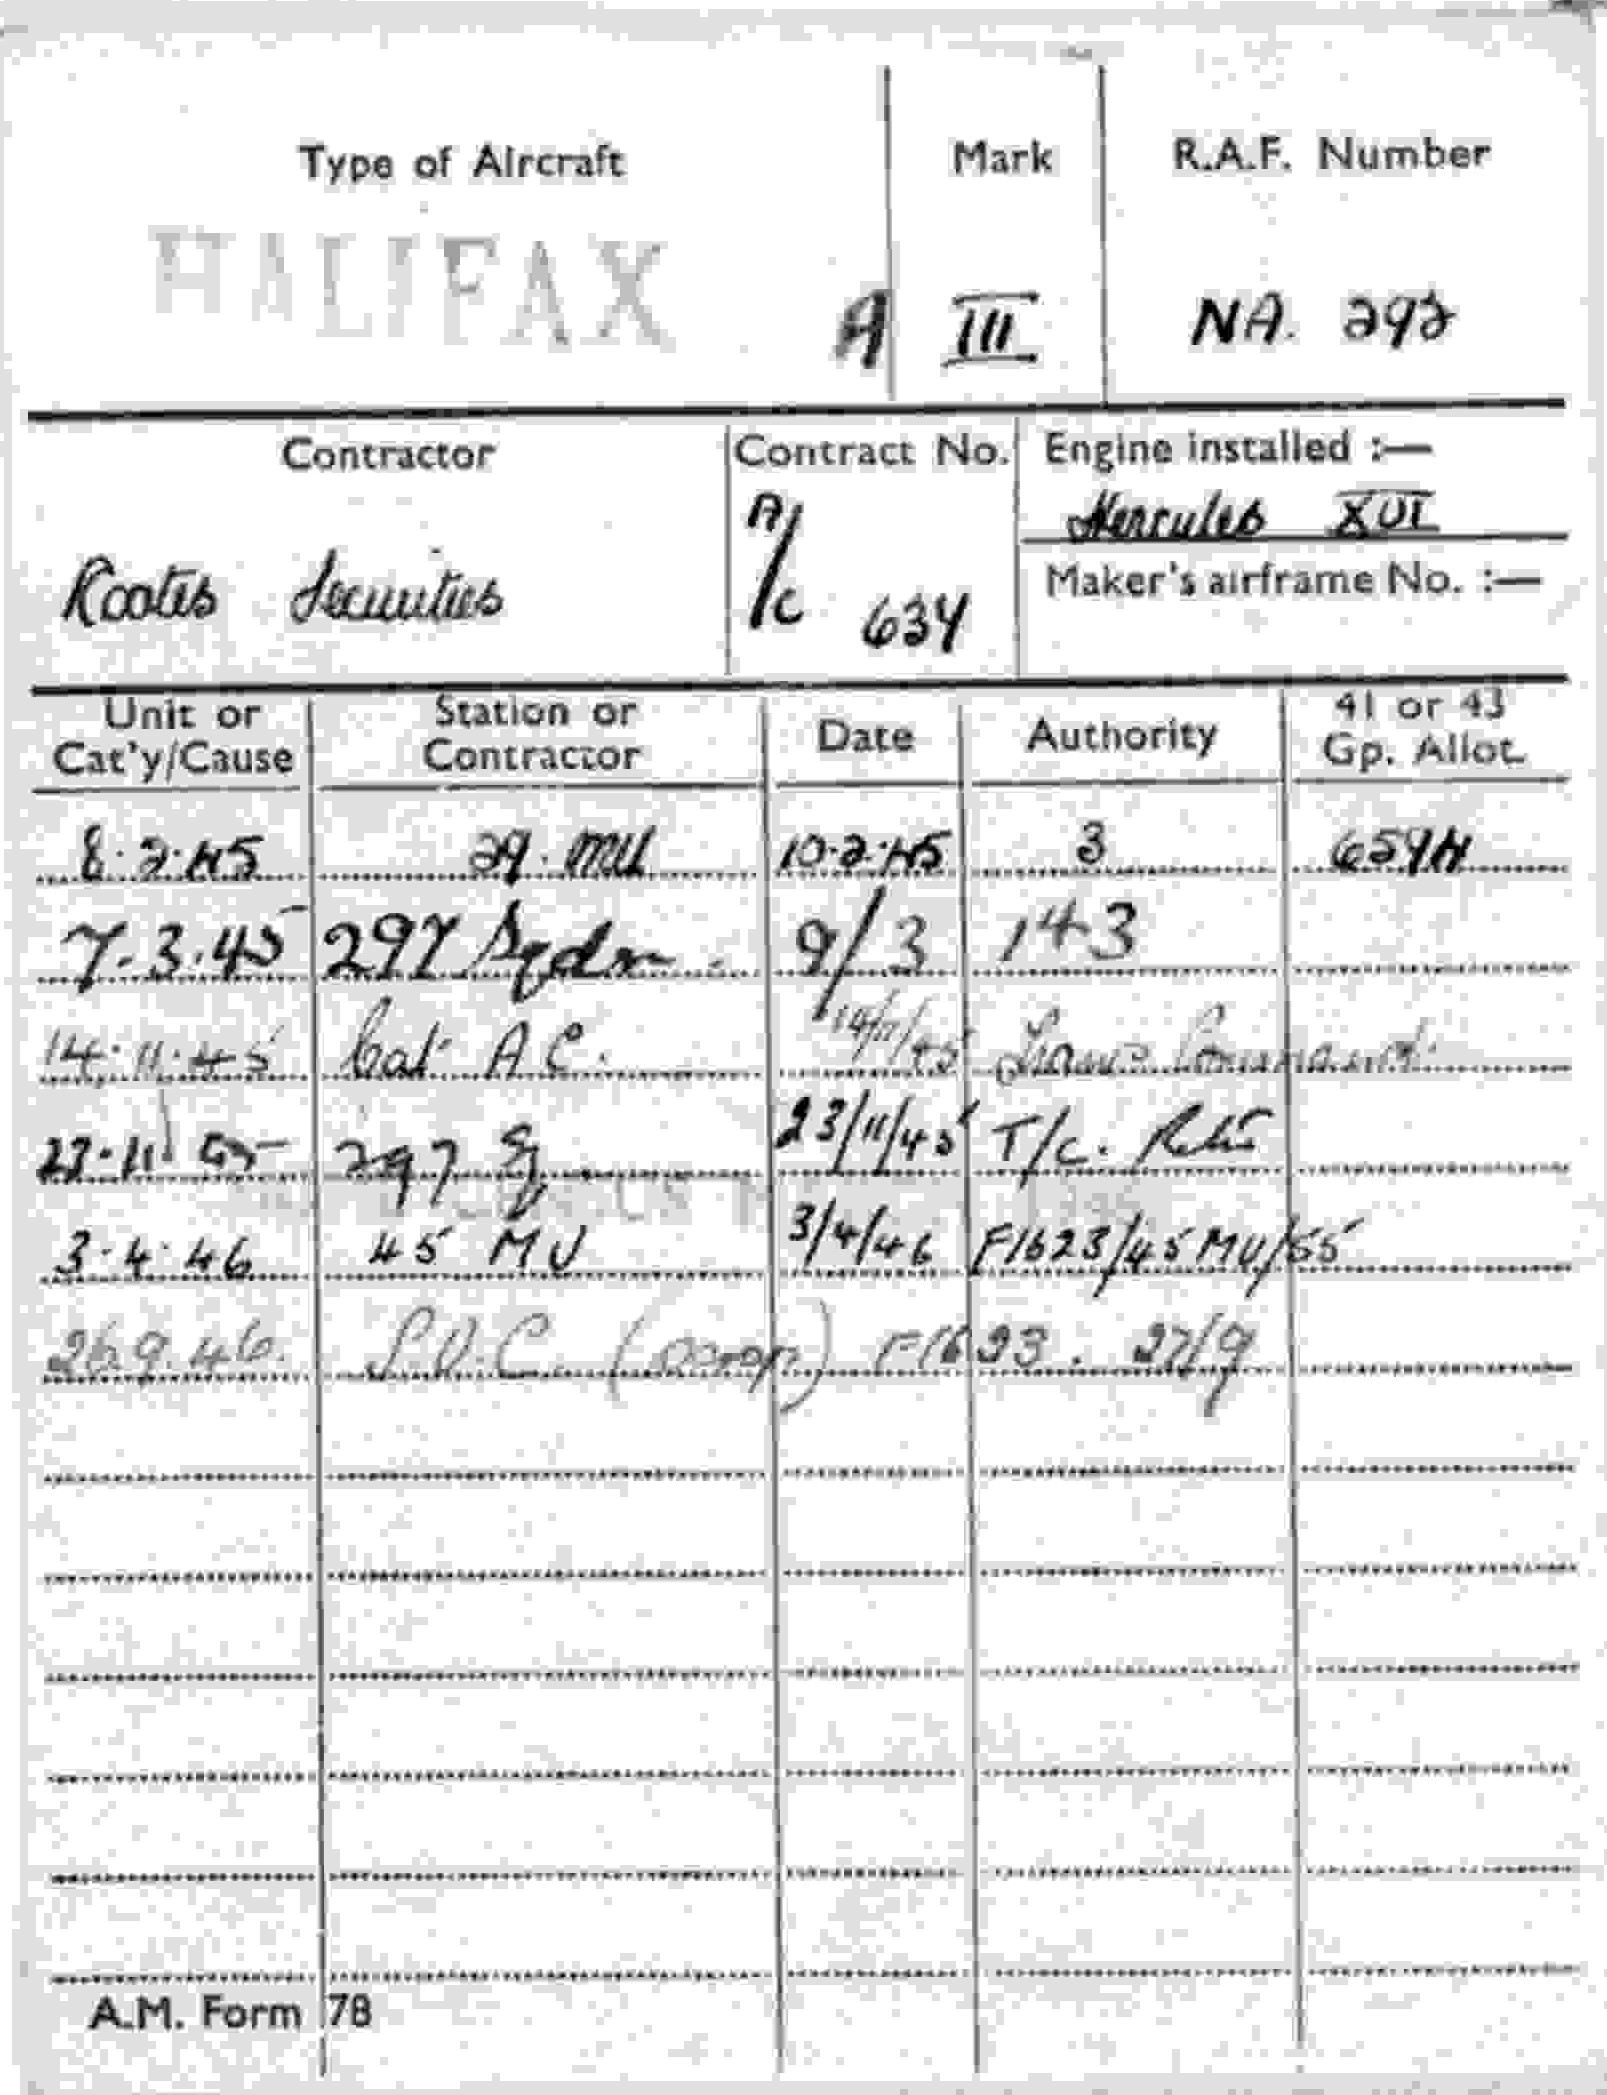 Type of Aircraft Mark R.A.F. Number
HALIFAX A III NA. 292
Contractor Contract No. Engine installed :—
Hercules XVI
Rootes Securities A/C 634 Maker's airframe No. :—
Unit or Cat'y/Cause Station or Contractor Date Authority 41 or 43 Gp. Allot.
8.2.45 29. MU 10.2.45 3 659H
7.3.45 297 Sqdn. 9/3 143
14.11.45 Cat A.C. 14/11/45 Trans. Command.
297 Sq 23/11/45 T/C.
3.4.46 45 MU 3/4/46 F1623/45MU/55
26.9.46. S.O.C. (scrap) 27/9
A.M. Form 78